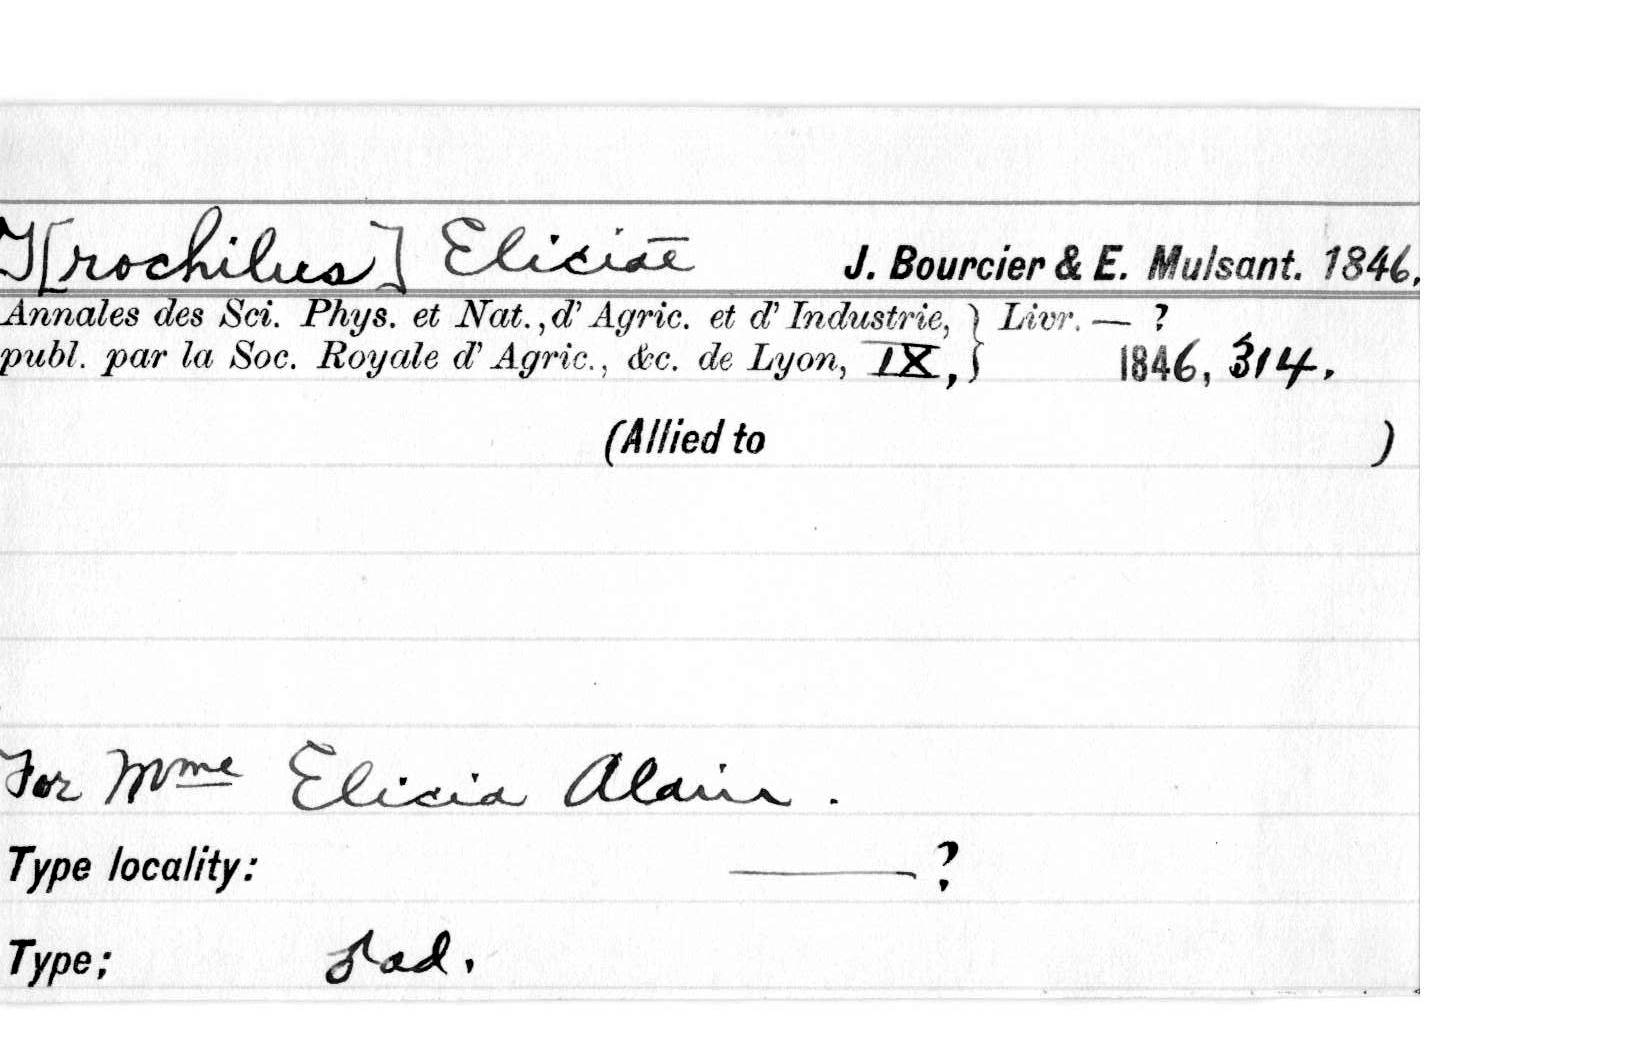 T[rochilus] Eliciae J. Bourcier & E. Mulsant. 1846.
Annales des Sci. Phys. et Nat., d' Agric. et d' Industrie, } Livr. — ?
publ. par la Soc. Royale d' Agric., &c. de Lyon, IX, } 1846, 314.
(Allied to )
For Mme Elicia Alain.
Type locality: —— ?
Type; ♂ ad.